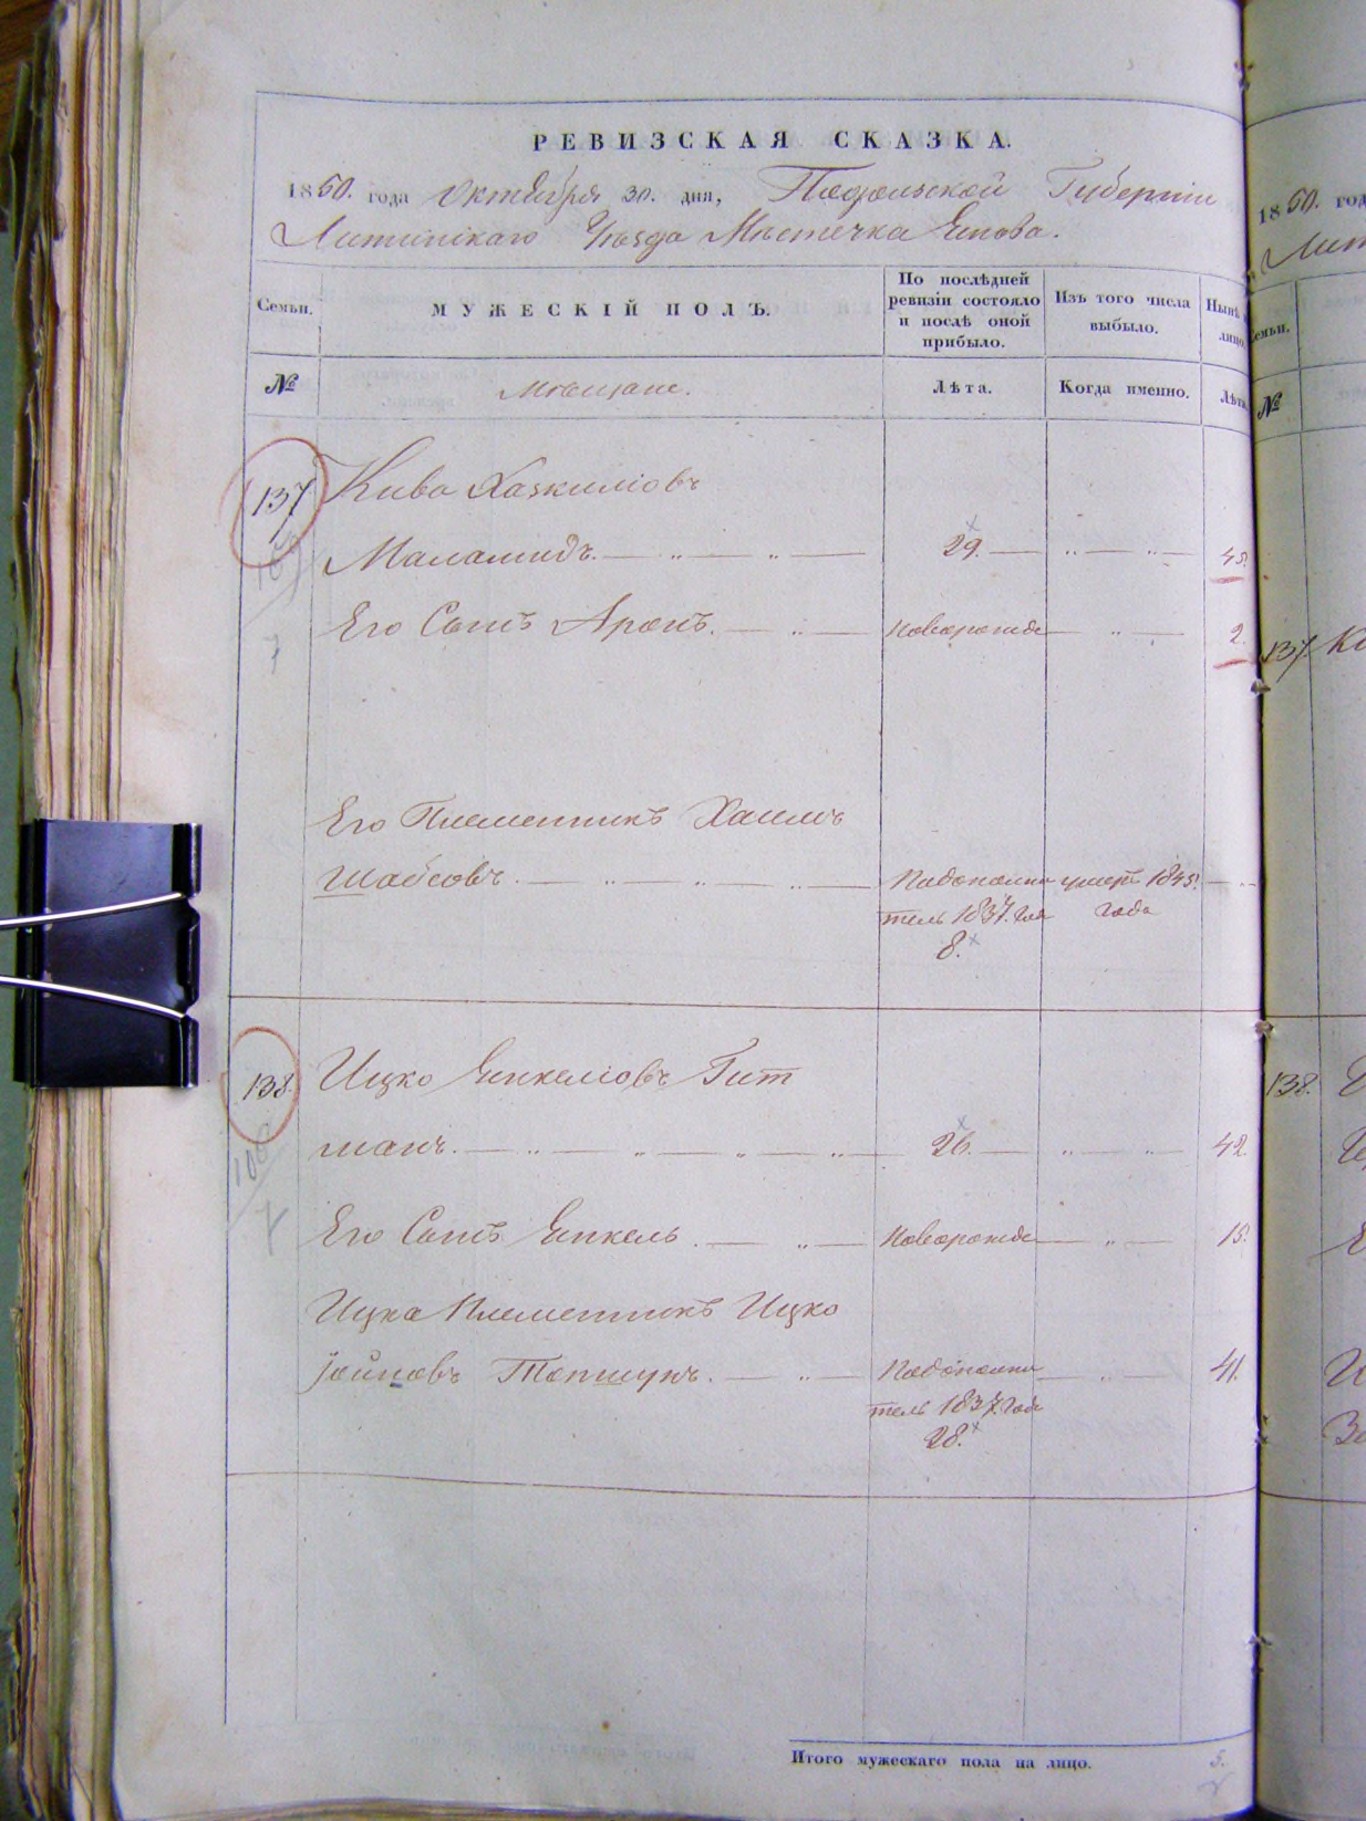 РЕВИЗСКАЯ СКАЗКА.
1850. года Октября 30. дня, Подольской Губерніи
Литинскаго Уѣзда Мѣстечка Янова.
Семьи. МУЖЕСКІЙ ПОЛЪ. По послѣдней ревизіи состояло и послѣ оной прибыло. Изъ того числа выбыло. Нынѣ лицо.
№ Мѣщане. Лѣта. Когда именно. Лѣта
137 Кива Хаскиліовъ
Маламидъ. 29. 45.
Его Сынъ Аронъ. Новорожде 2.
Его Племенникъ Хаимъ
Шабсовъ. Падополни умеръ 1845.
тель 1837. года года
8.
138. Ицко Янкеліовъ Гит
манъ. 26. 42.
Его Сынъ Янкель. Новорожде 15.
Ицка Племенникъ Ицко
Іойновъ Топшукъ. Падополни 41.
тель 1837. года
28.
Итого мужескаго пола на лицо. 5.
1850. год
Лит
Семьи.
№
137. Ко
138.